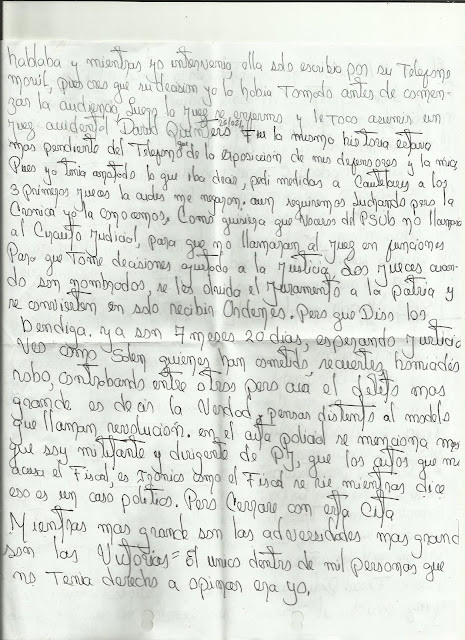 hablaba y mientras yo intervenia ella solo escribia por su Telefono
movil, pues creo que su decision ya lo habia Tomado antes de comen-
zar la audiencia, luego la Juez se enfermo y le toco asumir un
Juez accidental David 25/02/ Fue la misma historia estuvo
mas pendiente del Telefono que de la exposicion de mis defensores y la mia,
Pues yo tenia anotado lo que iba decir, pedi medidas a Cautelares a los
3 primeros jueces la cuales me negaron. aun seguiremos luchando pero la
Cronica ya la conocemos. Como quisiera que Voceros del PSUB no llamara
al Circuito Judicial, para que no llamaran al Juez en funciones
Para que Tome decisiones ajustado a la Justicia, los Jueces cuan-
do son nombrados, se les olvida el Juramento a la patria y
se convierten en solo recibir Ordenes. Pero que Dios los
bendiga. ya son 7 meses 20 dias, esperando Justicia
Veo como Salen quienes han cometido, secuertos, homicidios
robo, contrabando entre otros pero aca el delito mas
grande es decir la Verdad y pensar distinto al modelo
que llaman revolucion. en el acta policial se menciona mas
que soy militante y dirigente de PJ, que los autos que me
acusa el Fiscal, es ironico como el Fiscal se rie mientras dice
eso es un caso politico. Pero Cerrare con esta Cita
Mientras mas grande son las adversidades mas grand
son las Victorias = El unico dentro de mil personas que
no Tenia derecho a opinar era yo.